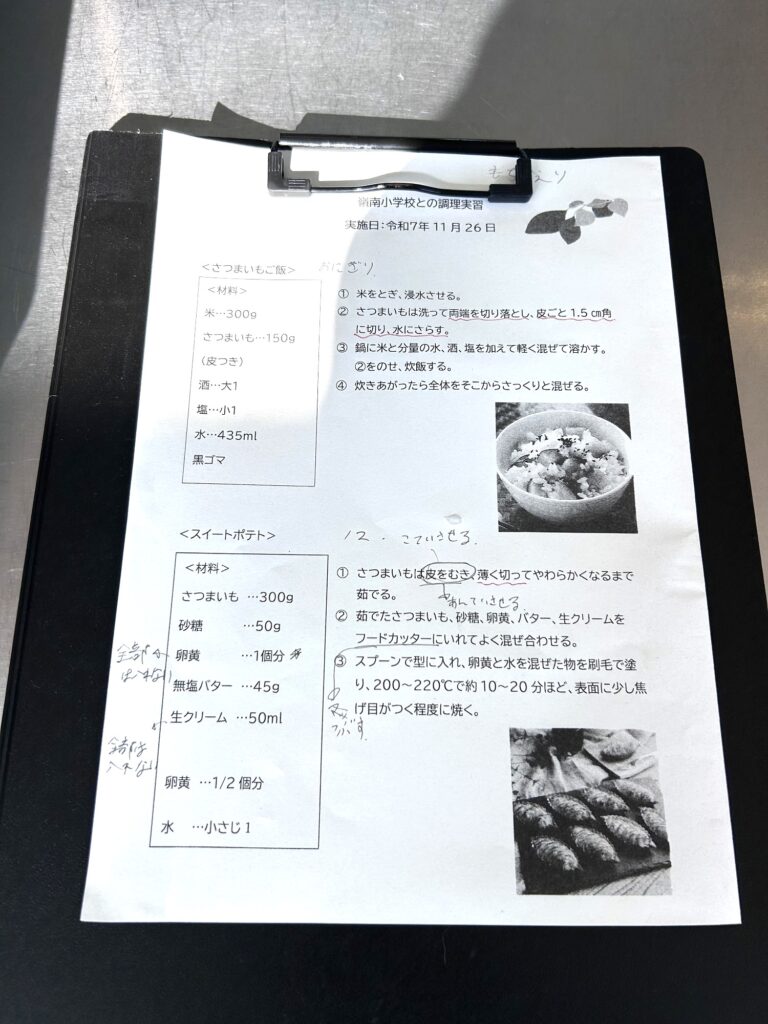 嶺南小学校との調理実習
実施日:令和7年11月26日
<さつまいもご飯>
おにぎり
<材料>
米…300g
さつまいも…150g
(皮つき)
酒…大1
塩…小1
水…435ml
黒ゴマ
① 米をとぎ、浸水させる。
② さつまいもは洗って両端を切り落とし、皮ごと1.5㎝角
に切り、水にさらす。
③ 鍋に米と分量の水、酒、塩を加えて軽く混ぜて溶かす。
②をのせ、炊飯する。
④ 炊きあがったら全体をそこからさっくりと混ぜる。
<スイートポテト>
12.
こていさせる
<材料>
さつまいも …300g
砂糖 …50g
卵黄 …1個分
無塩バター …45g
生クリーム …50ml
卵黄 …1/2個分
水 …小さじ1
全部は
入れない
① さつまいもは皮をむき、薄く切ってやわらかくなるまで
茹でる。
あんていさせる
② 茹でたさつまいも、砂糖、卵黄、バター、生クリームを
フードカッターにいれてよく混ぜ合わせる。
③ スプーンで型に入れ、卵黄と水を混ぜた物を刷毛で塗
り、200~220℃で約10~20分ほど、表面に少し焦
げ目がつく程度に焼く。
つぶす